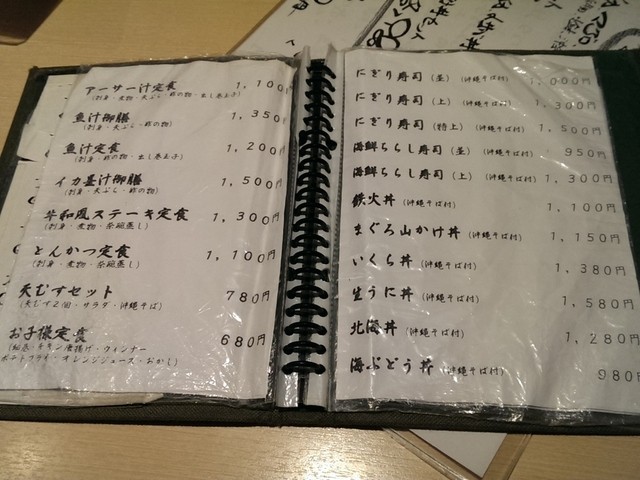 アーサー汁定食 1,100円
(刺身・煮物・天ぷら・酢の物・出し巻玉子)
魚汁御膳 1,350
(刺身・天ぷら・酢の物)
魚汁定食 1,200
(刺身・酢の物・出し巻玉子)
イカ墨汁御膳 1,500
(刺身・天ぷら・酢の物)
牛和風ステーキ定食 1,300
(刺身・煮物・茶碗蒸し)
とんかつ定食 1,100円
(刺身・煮物・茶碗蒸し)
天むすセット 780円
(天むす2個・サラダ・沖縄そば)
お子様定食 680円
チキン唐揚げ・ウィンナー
ポテトフライ・オレンジジュース・おかし)
にぎり寿司(並)(沖縄そば付) 1,000円
にぎり寿司(上)(沖縄そば付) 1,300円
にぎり寿司(特上)(沖縄そば付) 1,500円
海鮮ちらし寿司(並)(沖縄そば付) 950円
海鮮ちらし寿司(上)(沖縄そば付) 1,300円
鉄火丼(沖縄そば付) 1,100円
まぐろ山かけ丼(沖縄そば付) 1,150円
いくら丼(沖縄そば付) 1,380円
生うに丼(沖縄そば付) 1,580円
北海丼(沖縄そば付) 1,280円
海ぶどう丼(沖縄そば付) 980円